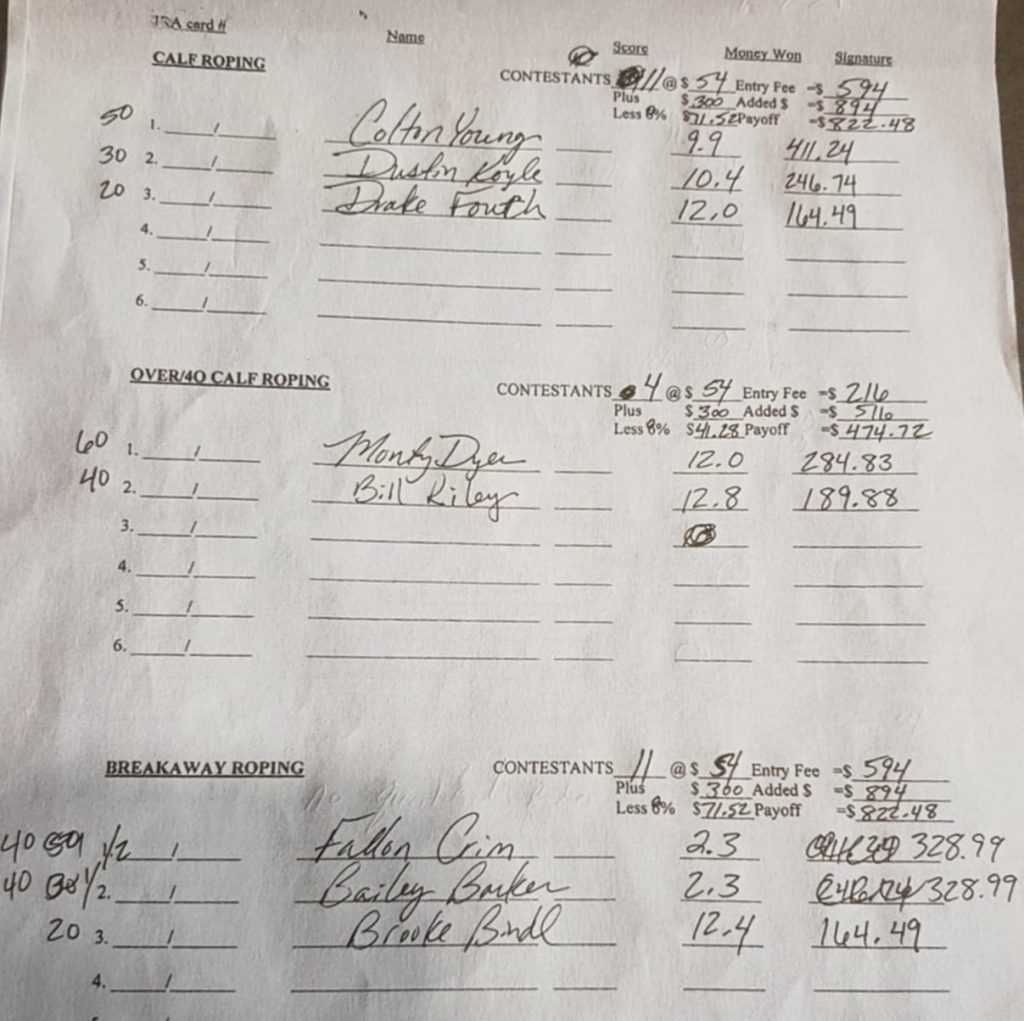 JRA card # Name Score Money Won Signature
CALF ROPING CONTESTANTS 11 @ $ 54 Entry Fee =$ 594
Plus $ 300 Added $ =$ 894
Less 8% $71.52 Payoff =$ 822.48
50 1. / Colton Young 9.9 411.24
30 2. / Dustin Koyle 10.4 246.74
20 3. / Drake Fouth 12.0 164.49
4. /
5. /
6. /
OVER/40 CALF ROPING CONTESTANTS 4 @ $ 54 Entry Fee =$ 216
Plus $ 300 Added $ =$ 516
Less 8% $41.28 Payoff =$ 474.72
60 1. / Monty Dyer 12.0 284.83
40 2. / Bill Riley 12.8 189.88
3. /
4. /
5. /
6. /
BREAKAWAY ROPING CONTESTANTS 11 @ $ 54 Entry Fee =$ 594
Plus $ 300 Added $ =$ 894
Less 8% $71.52 Payoff =$ 822.48
40 1/2 / Fallon Crim 2.3 328.99
40 1/2. / Bailey Barker 2.3 328.99
20 3. / Brooke Bindl 12.4 164.49
4. /